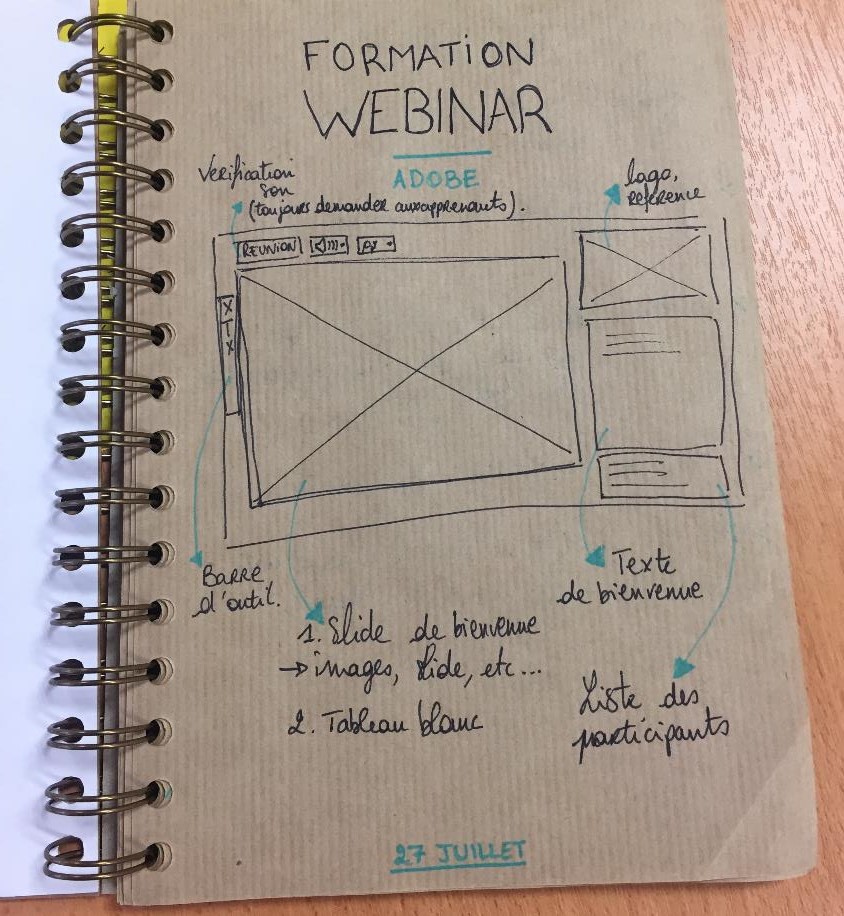 FORMATION
WEBINAR
ADOBE
Verification
son
(toujours demander aux apprenants).
logo,
reference
REUNION
X
T
X
BARRE
d'outil.
1. Slide de bienvenue
→ images, slide, etc...
2. Tableau blanc
Texte
de bienvenue
Liste des
participants
27 JUILLET